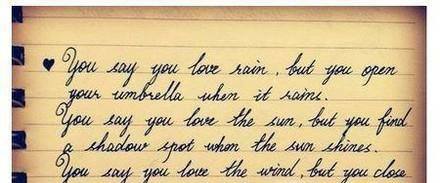 ♥ You say you love rain, but you open
your umbrella when it rains.
You say you love the sun, but you find
a shadow spot when the sun shines.
You say you love the wind, but you close